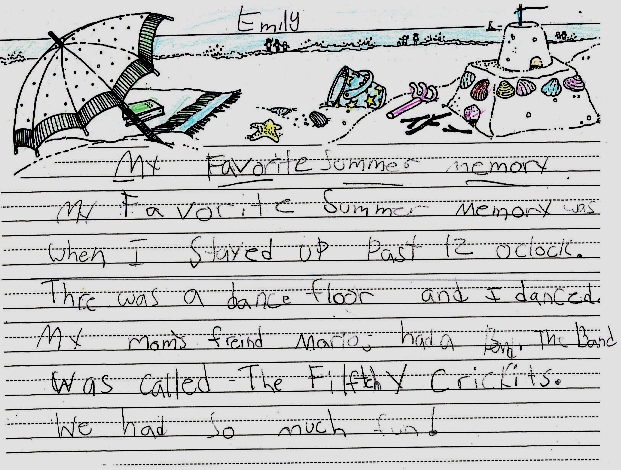 Emily
My Favorite Summer memory
My Favorite Summer Memory was
when I Stayed up Past 12 oclock.
Thre was a dance floor and I danced.
My mom's freind Mario had a Band. The Band
was called The Filfthy Crickits.
We had so much fun!